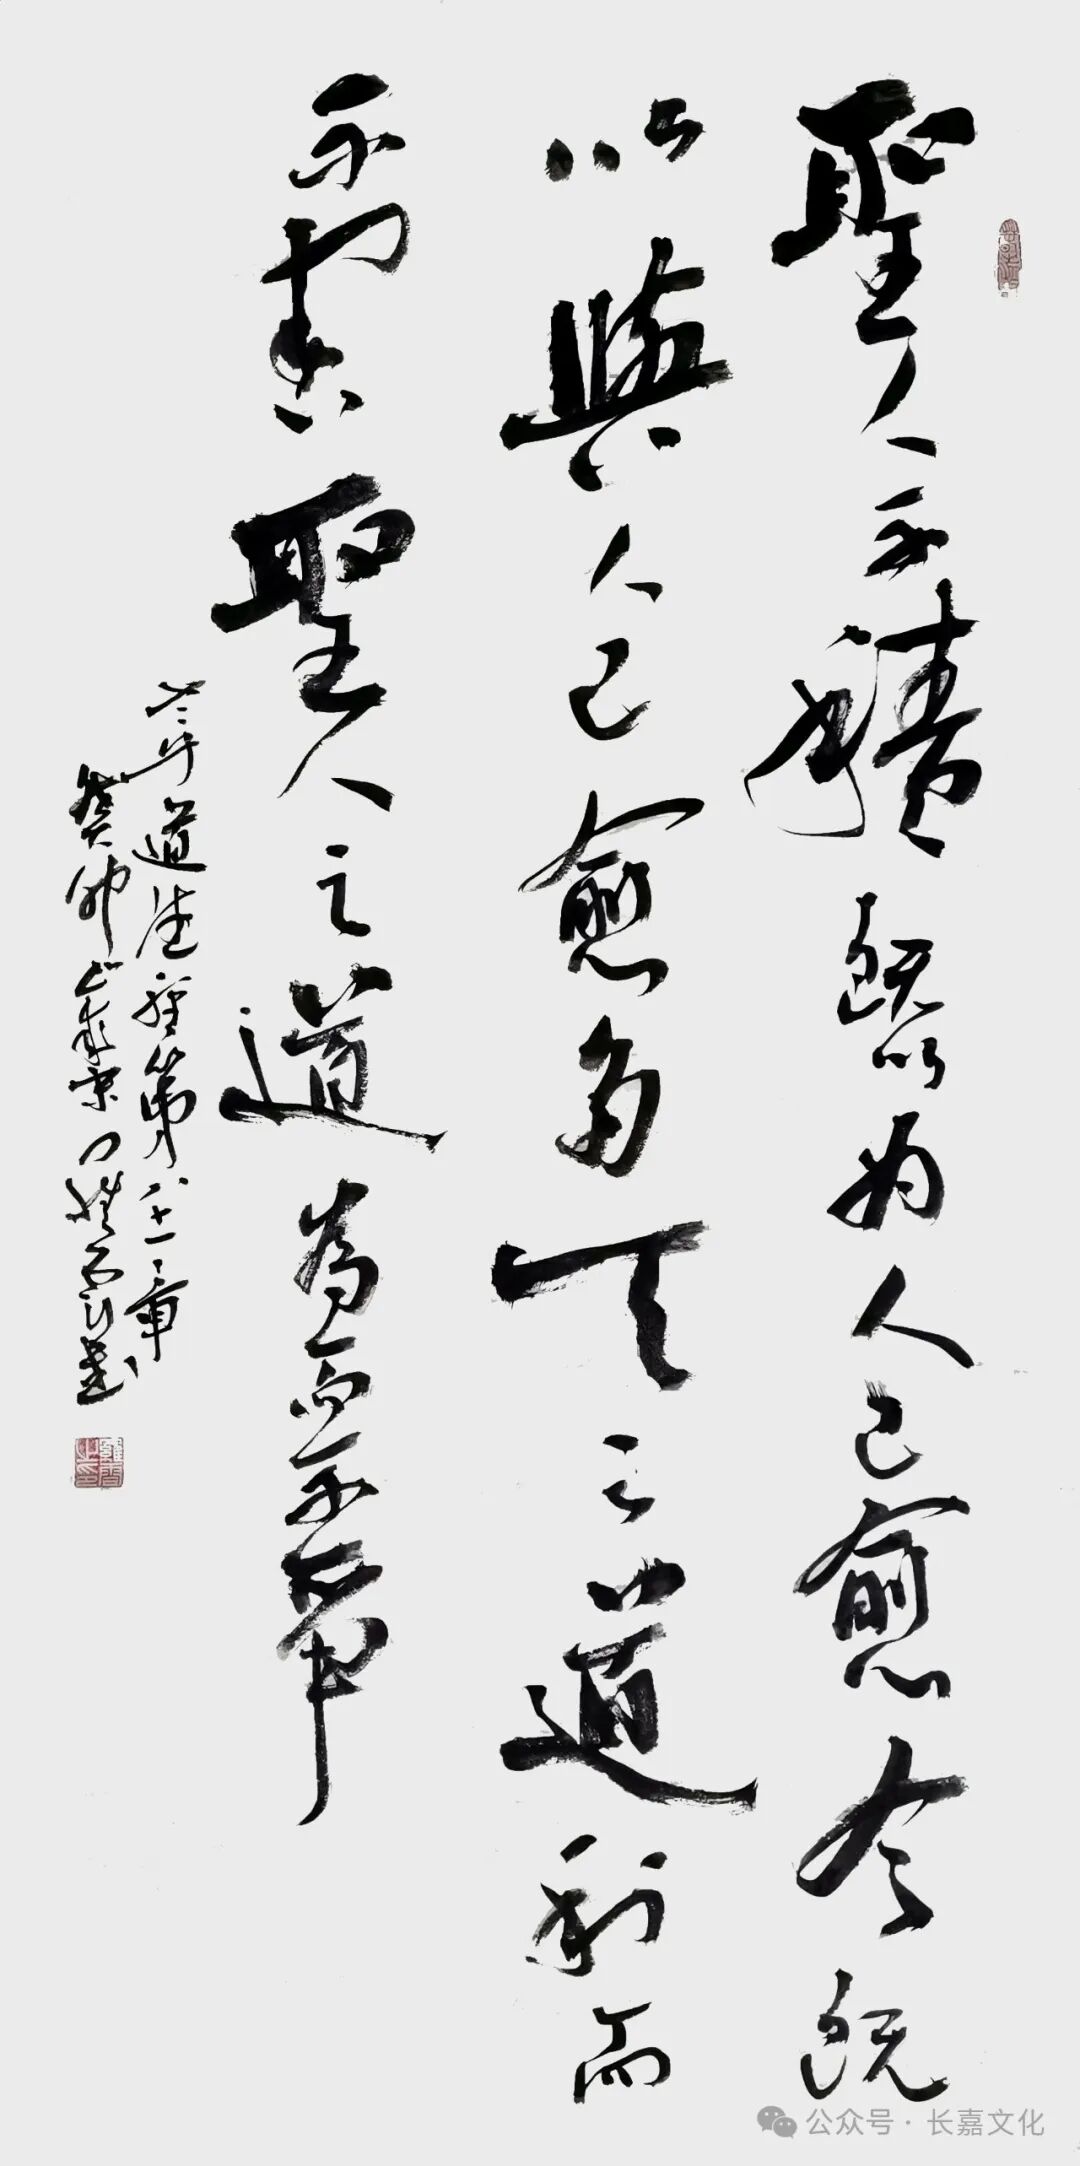 聖人不積既以为人己愈有既
以與人己愈多天之道利而
不害聖人之道為而不爭
老子道德經第八十一章
癸卯歲書
公众号 · 长嘉文化